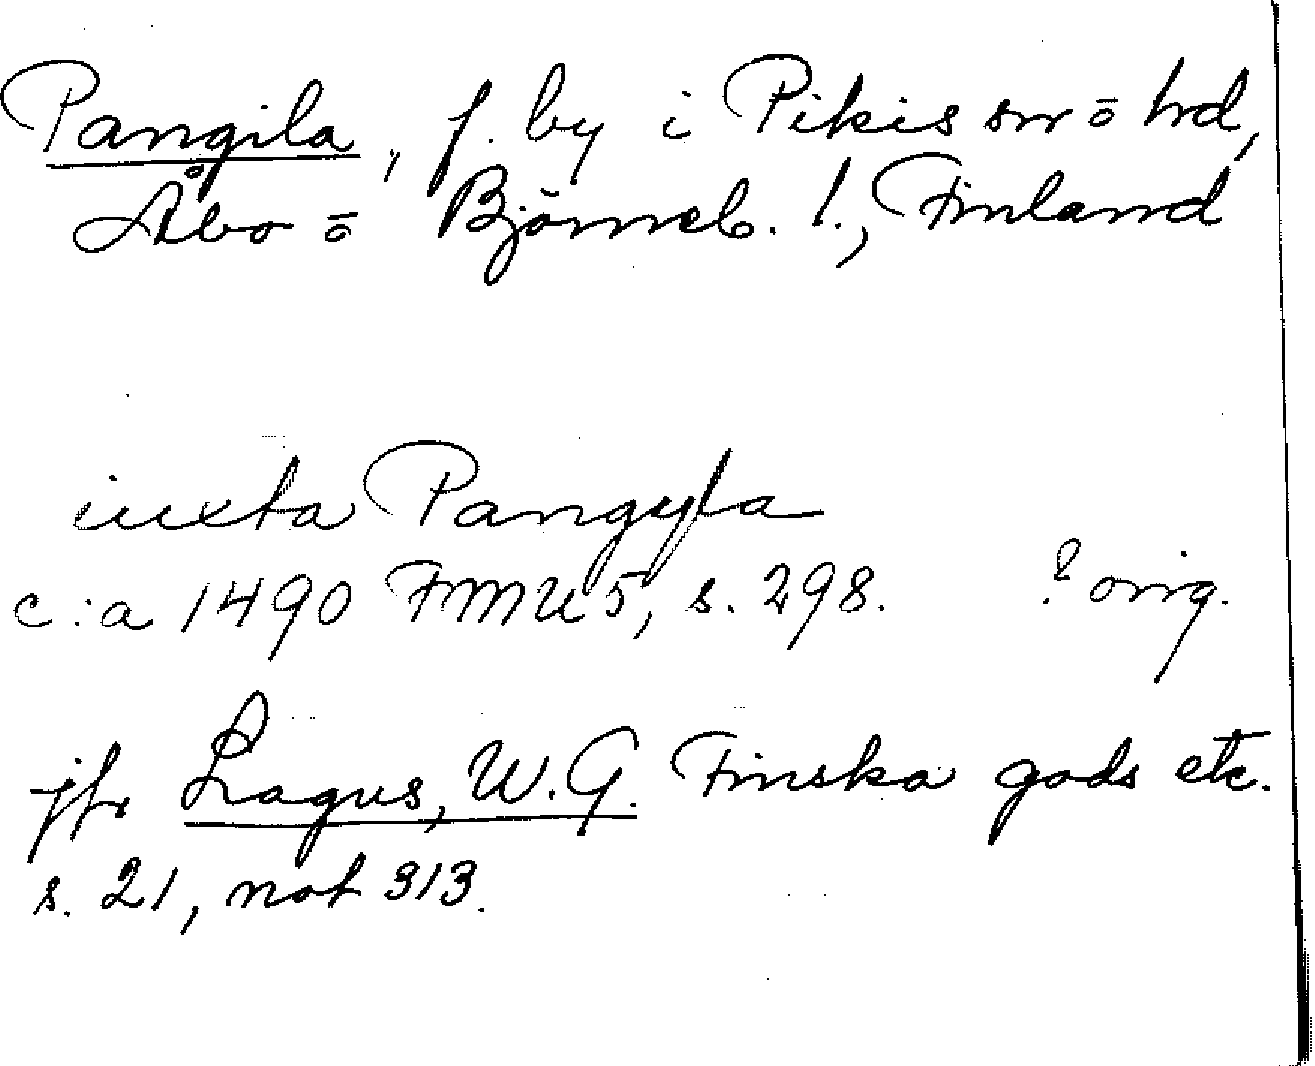 Pangila, f. by i Pikis sn ō hd,
Åbo ō Björneb. l., Finland
iuxta Pangyla
c:a 1490 FMU 5, s. 298. ? orig.
jfr Lagus, W. G. Finska gods etc.
s. 21, not 313.